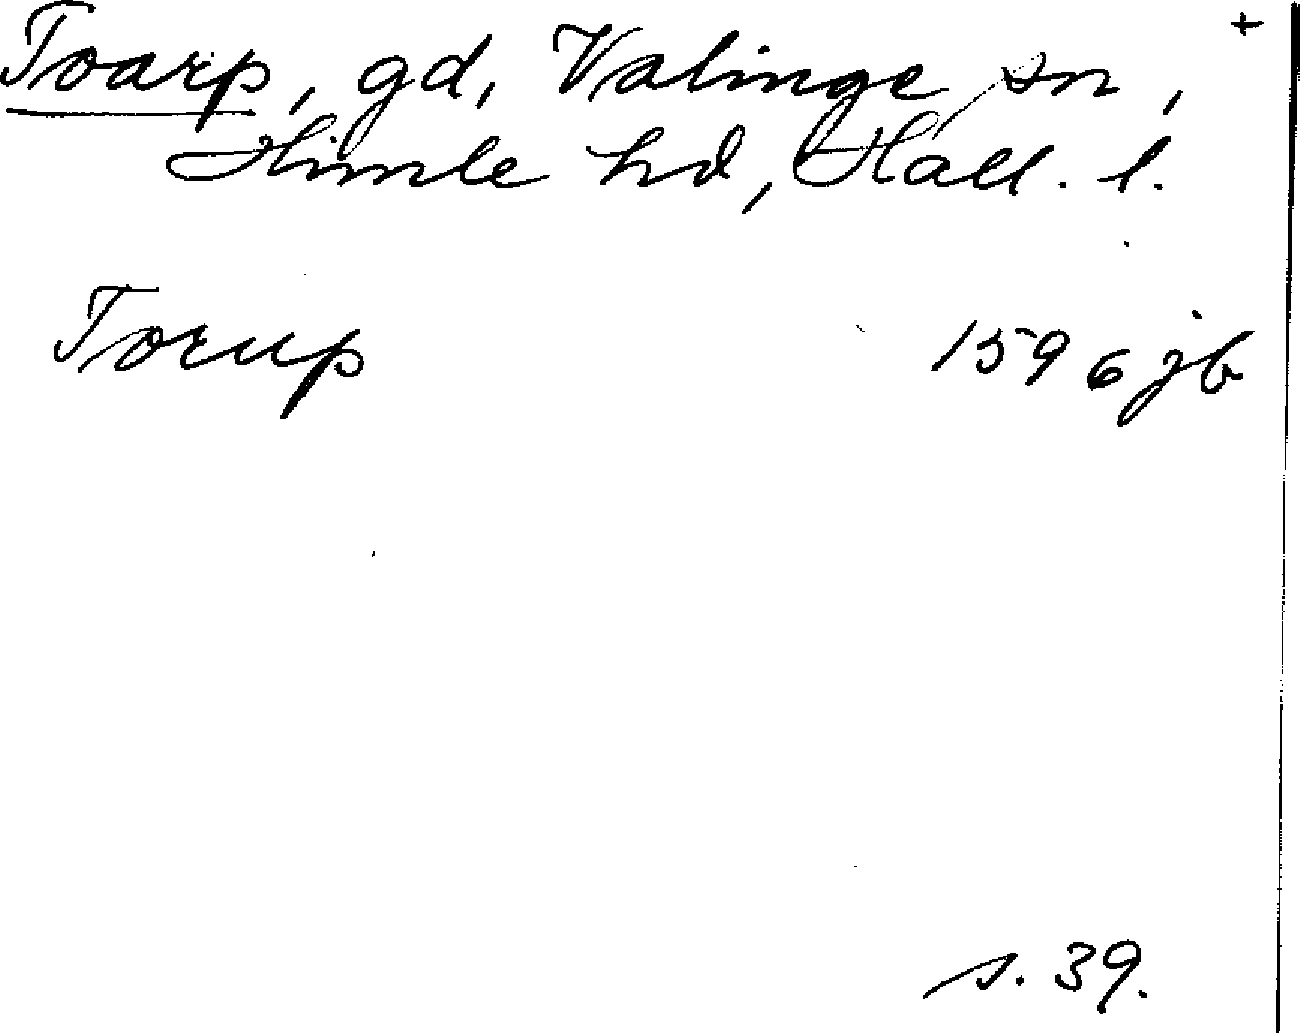 +
Toarp, gd, Valinge sn,
Himle hd, Hall. l.
Torup 1596 jb
s. 39.